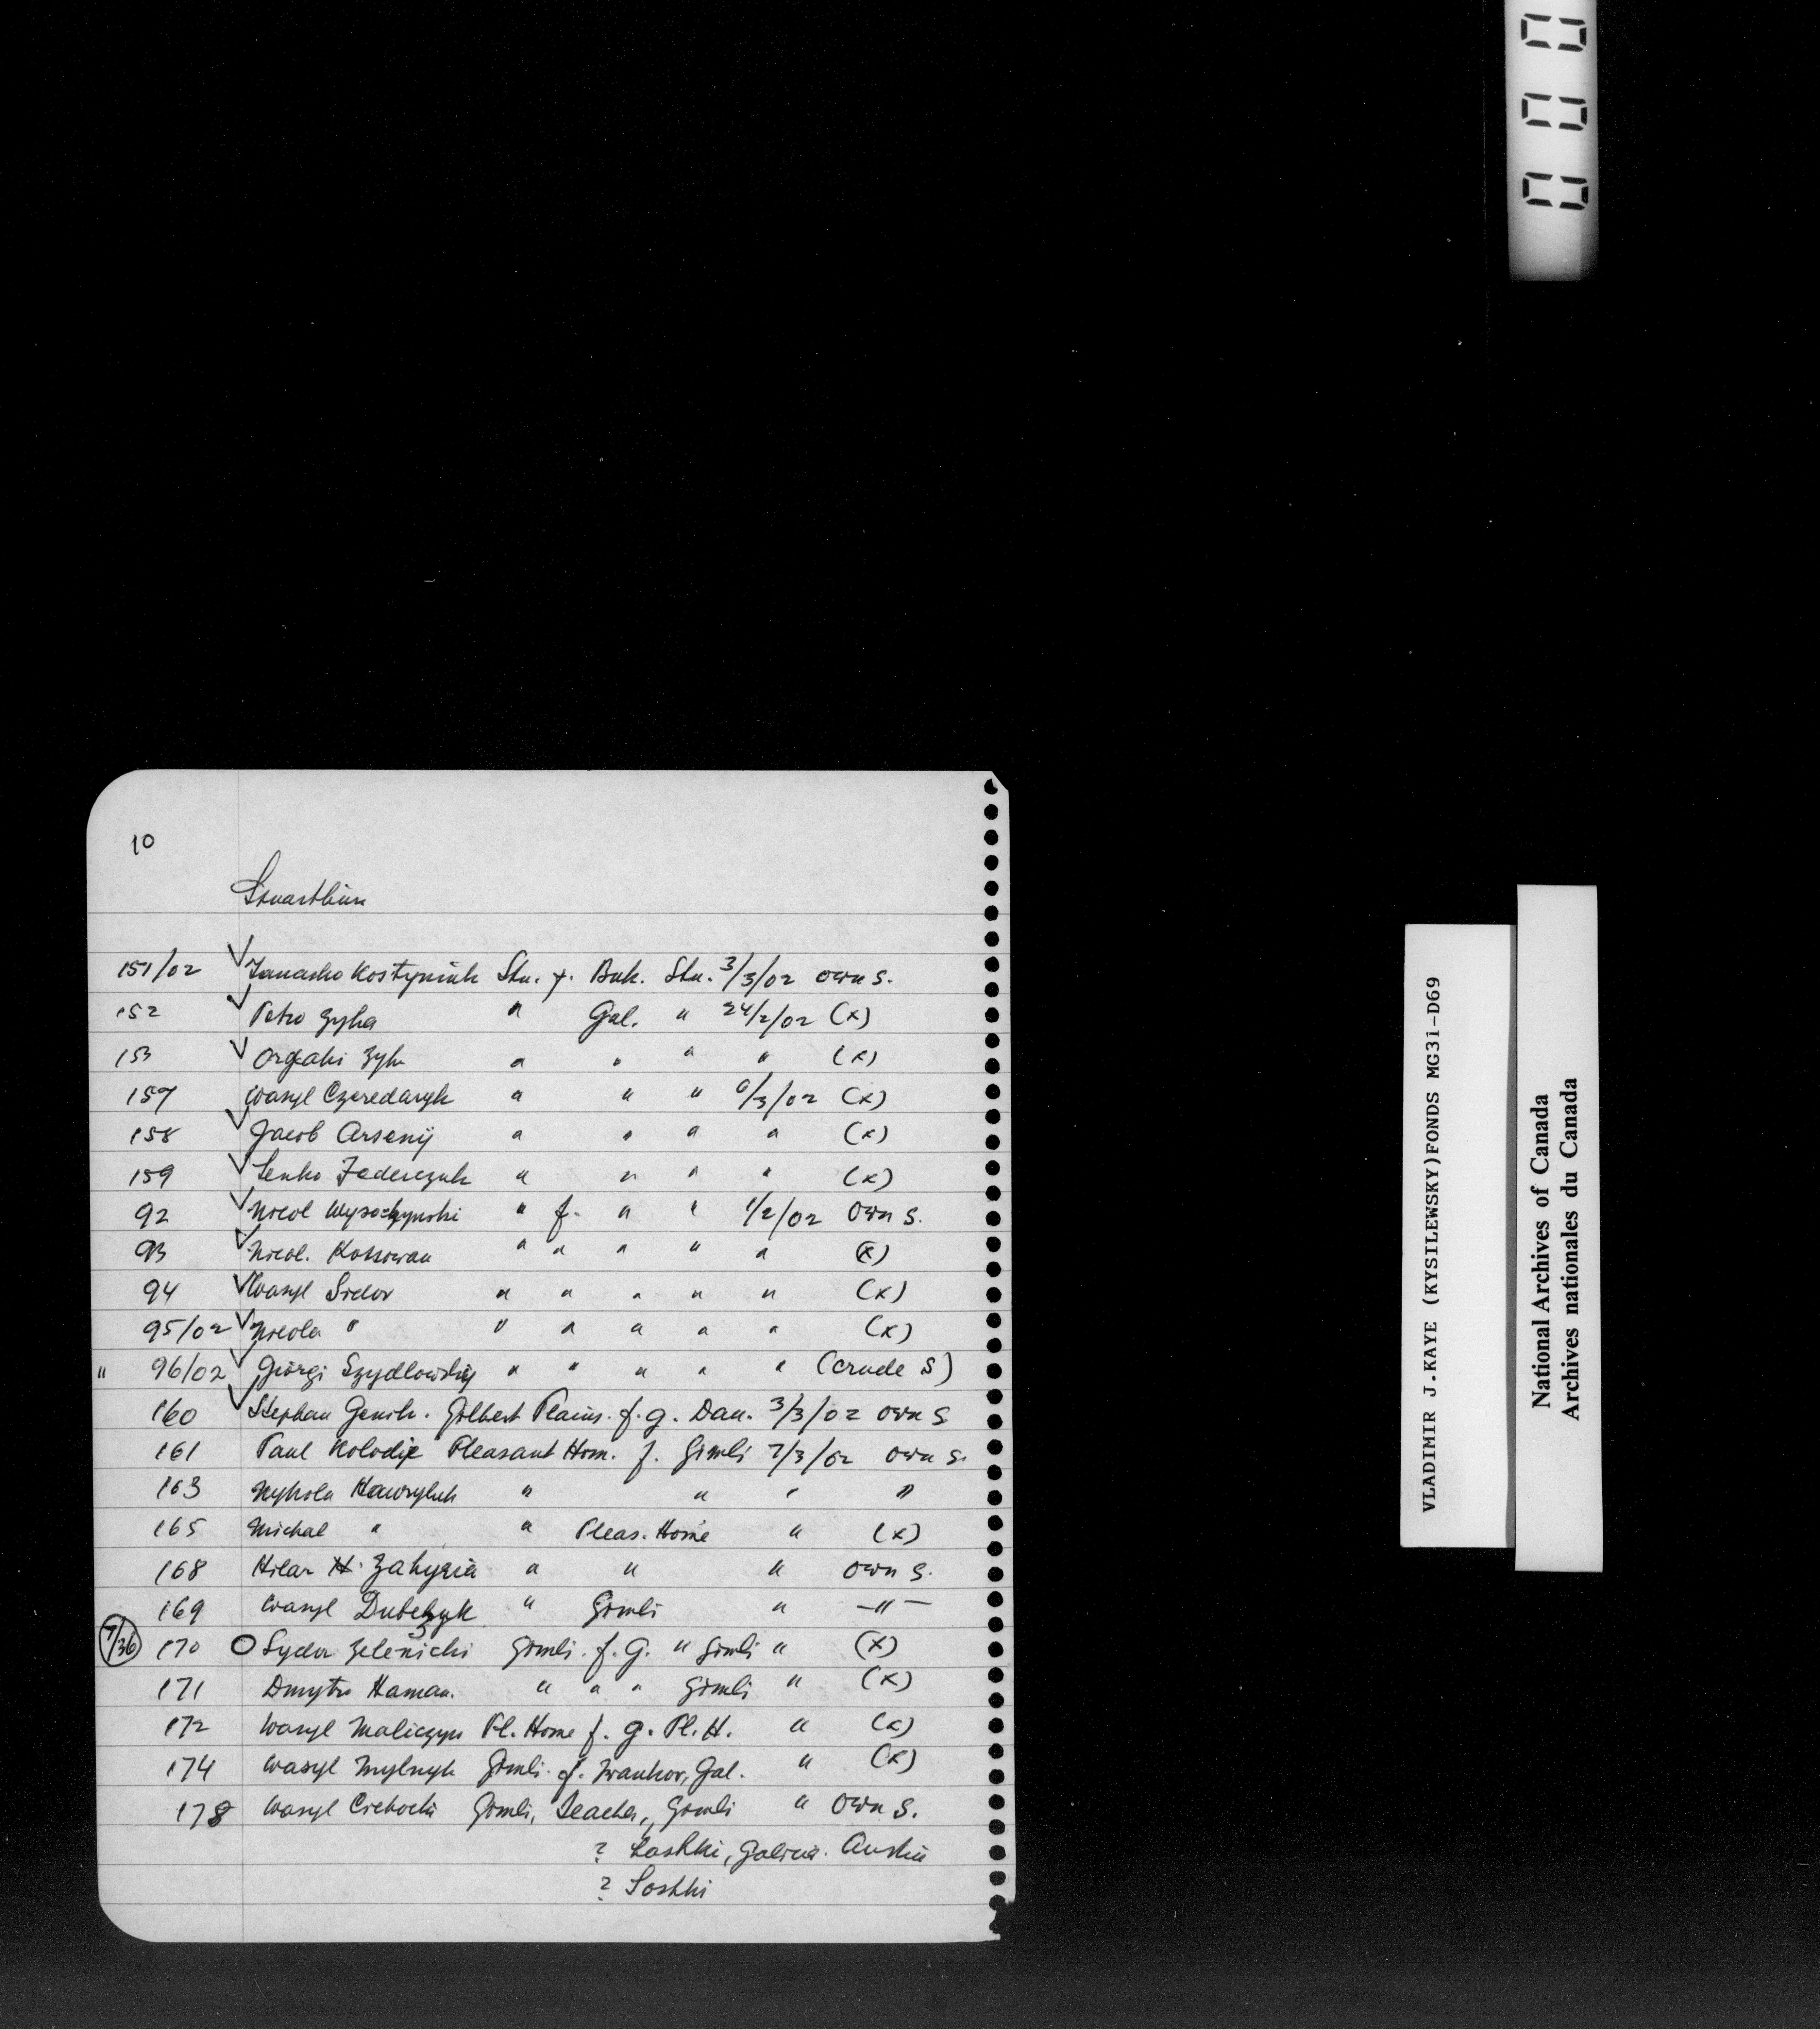 10
Stuartburn
151/02 ✓ Tanasko Kostyniuk Stu. f. Buk. Stu. 3/3/02 own s.
152 ✓ Petro Zyha " Gal. " 24/2/02 (x)
153 ✓ Zyha " " " " (x)
157 ✓ Wasyl Czeredaryk " " " 6/3/02 (x)
158 ✓ Jacob Arsenij " " " " (x)
159 ✓ Senko Federczuk " " " " (x)
92 ✓ Nicol Wysoczynski " f. " " 1/2/02 Own s.
93 ✓ Nicol. Kossowan " " " " " (x)
94 ✓ Wasyl Sidor " " " " " (x)
95/02 ✓ Nicola " " " " " " (x)
" 96/02 ✓ Giorgi Szydlowskij " " " " " (crude s)
160 ✓ Stephan Genik. Gilbert Plains. f. g. Dau. 3/3/02 own s
161 Paul Kolodij Pleasant Hom. f. Gimli 7/3/02 own s.
163 Mykola Hawryluk " " " "
165 Michal " " Pleas. Home " (x)
168 Hilar H. " " " own s.
169 Wasyl Dubczyk " Gimli " —"—
7/36 170 O Sydor Zelenicki Gimli. f. G. " Gimli " (x)
171 Dmytro Haman. " " " Gimli " (x)
172 Wasyl Maliczyn Pl. Home f. g. Pl. H. " (x)
174 Wasyl Mylnyk Gimli. f. Iwankov, Gal. " (x)
178 Wasyl Cichocki Gimli, Teacher, Gimli " Own s.
? Lashki, Galicia. Austria
? Soshki
VLADIMIR J.KAYE (KYSILEWSKY)FONDS MG31-D69
National Archives of Canada
Archives nationales du Canada